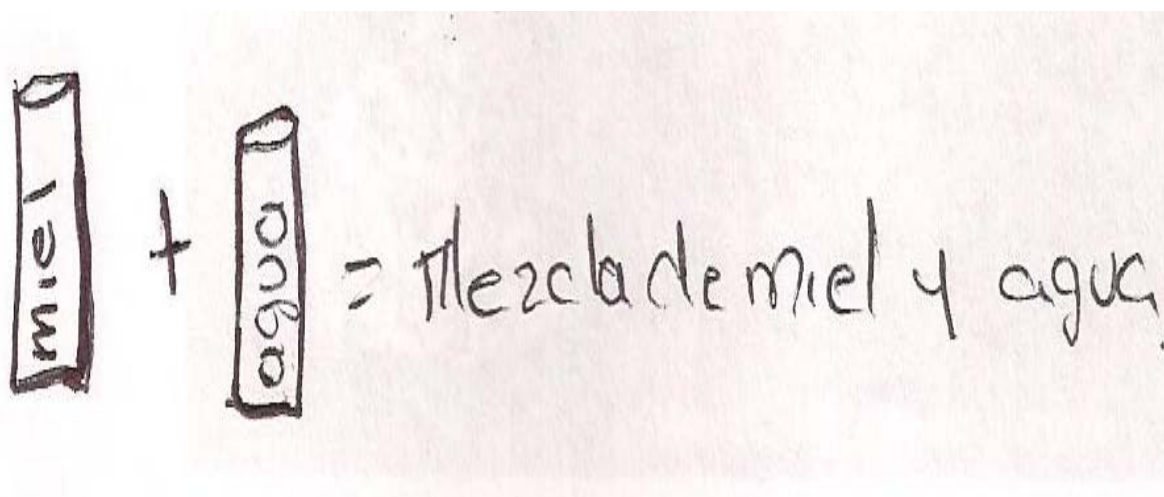 miel + agua = Mezcla de miel y agua.